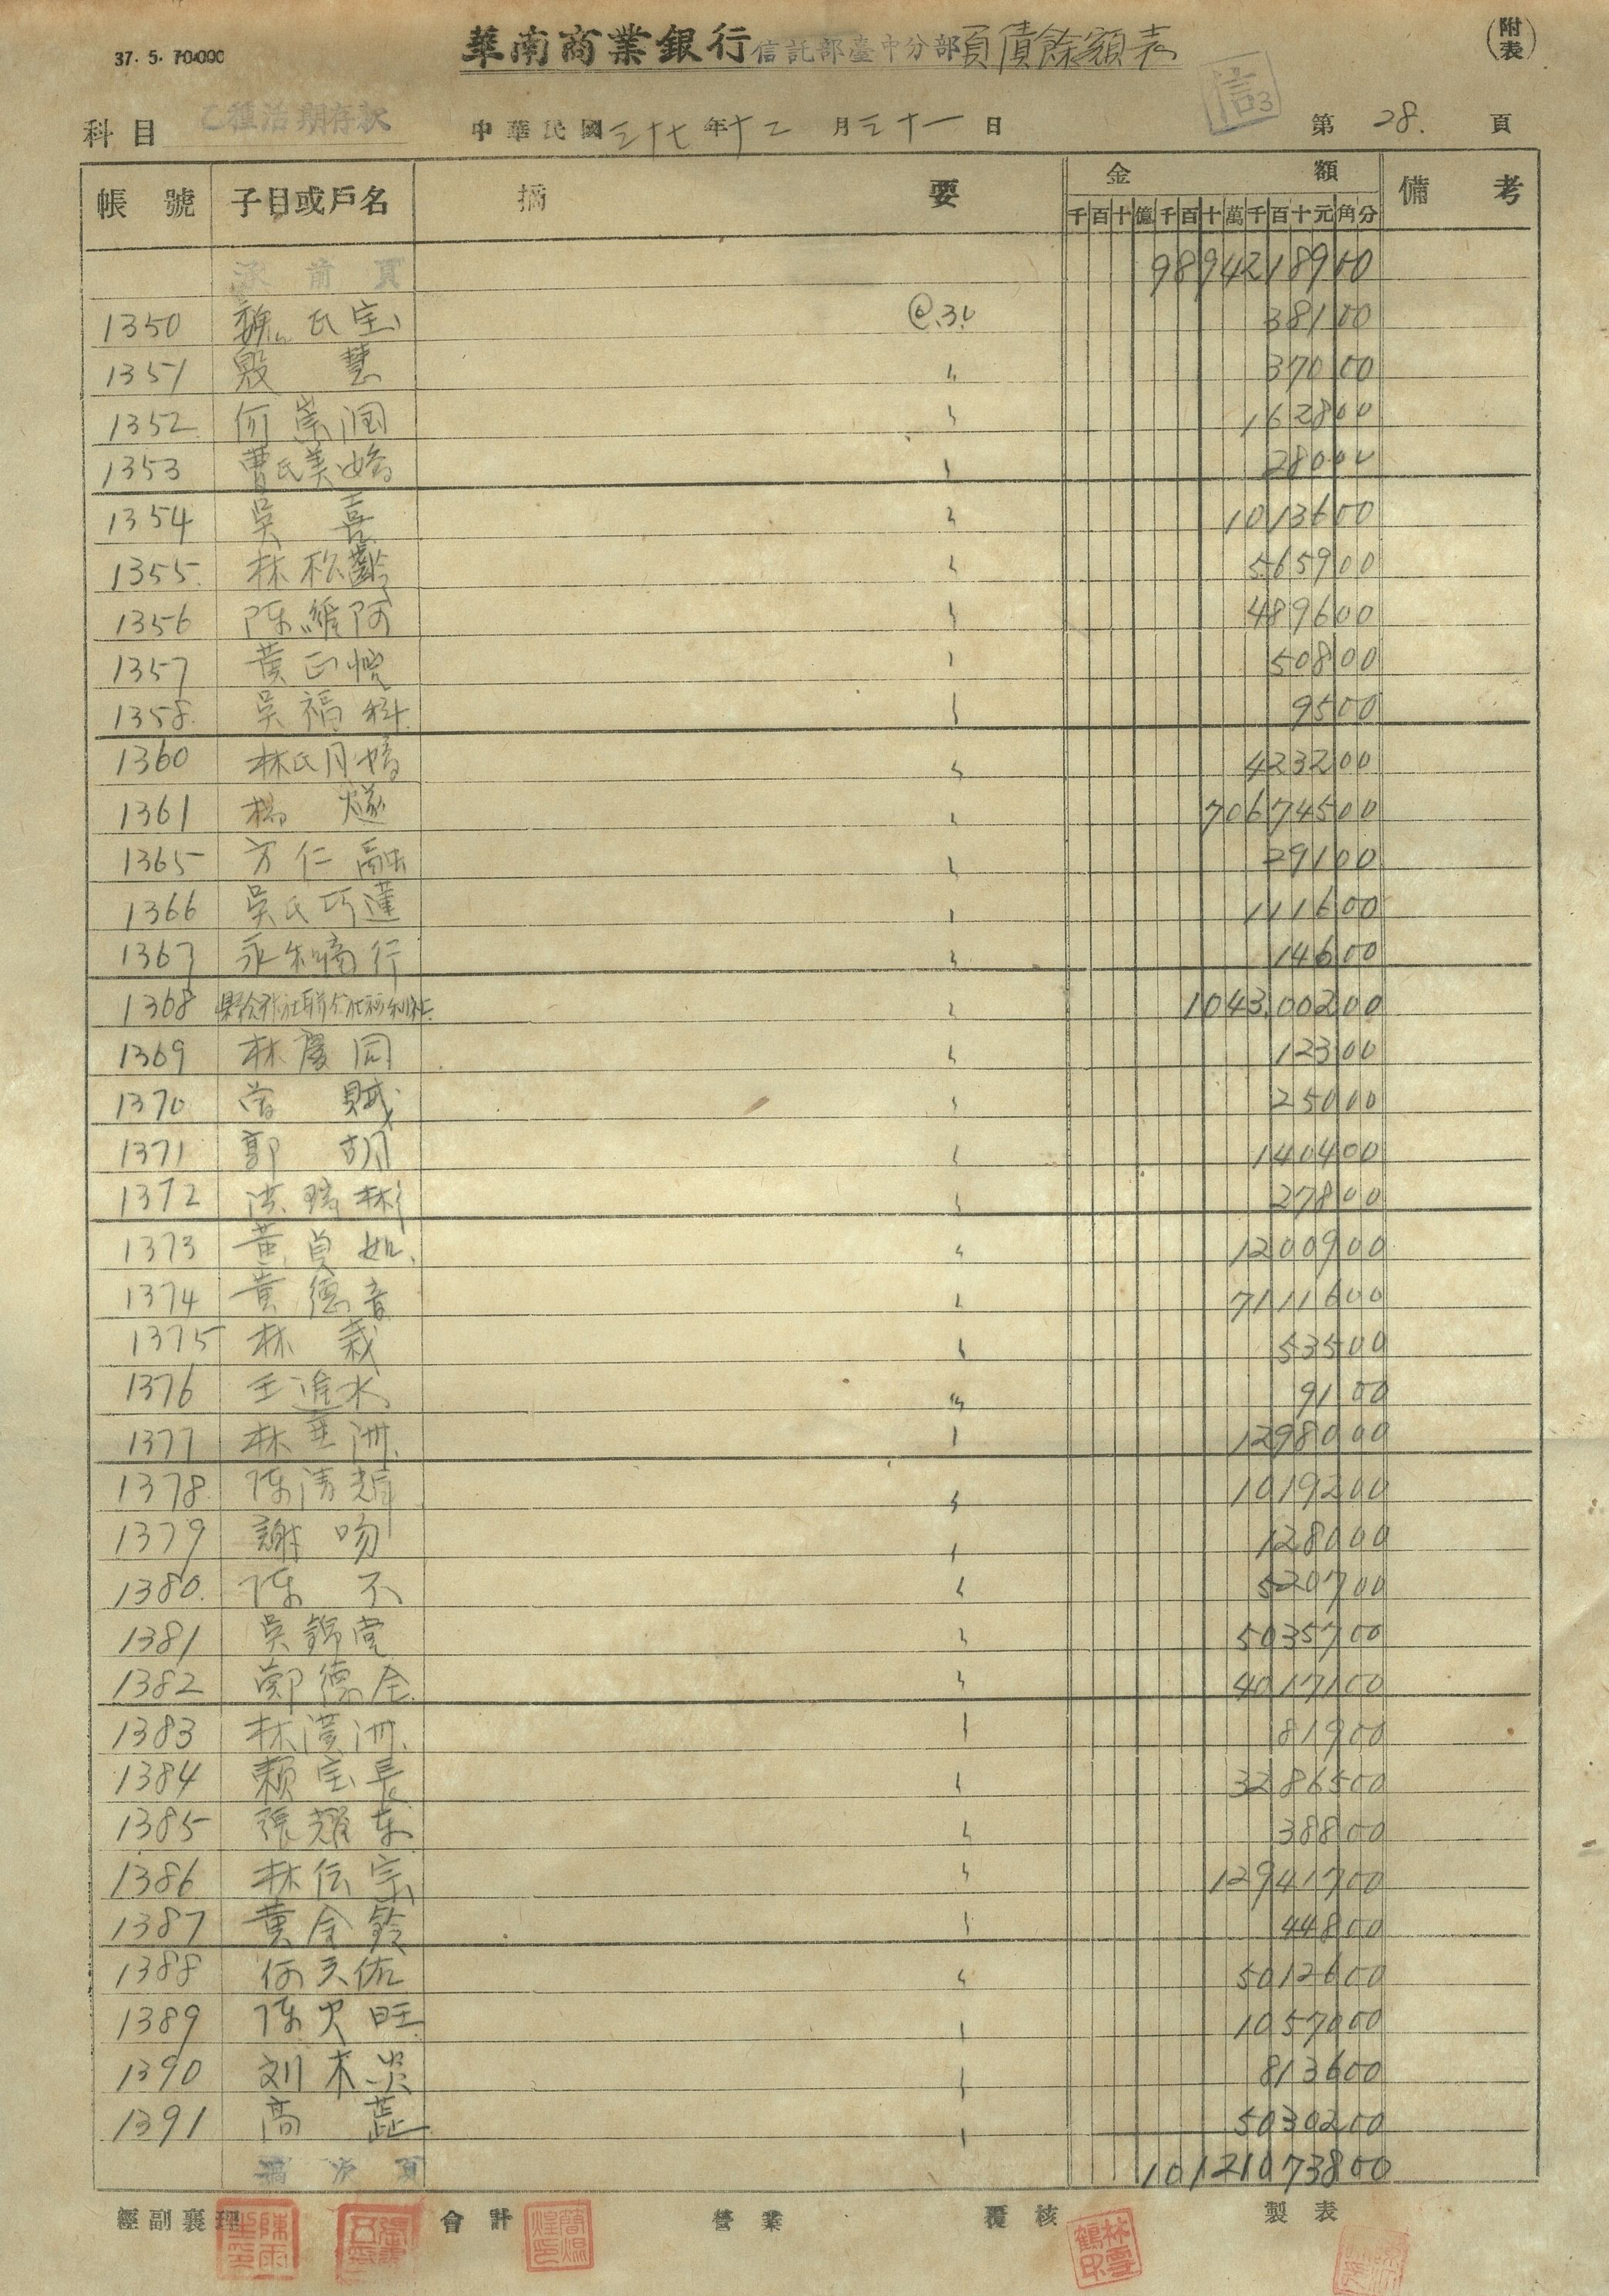 37. 5. 70000
華南商業銀行信託部臺中分部負債餘額表
(附表)
信3
科目 乙種活期存款 中華民國三十七年十二月三十一日 第28.頁
帳號 子目或戶名 摘要 金額 備考
千百十億千百十萬千百十元角分
承前頁 9894218900
1350 魏氏宝 @.3.0 38100
1351 殷慧 〃 37000
1352 何崇润 〃 162800
1353 曹氏美嬌 〃 28000
1354 吳喜 〃 1013600
1355. 林松齡 〃 565900
1356 陈維阿 〃 489600
1357 黄正 〃 50800
1358. 吳福科 〃 9500
1360 林氏月嬌 〃 423200
1361 楊燧 〃 70674500
1365 方仁融 〃 29100
1366 吳氏巧蓮 〃 111600
1367 永和商行 〃 14600
1368 〃 104300200
1369 林慶同 〃 12300
1370 曾賦 〃 25000
1371 郭胡 〃 140400
1372 洪瑞彬 〃 27800
1373 黃貞如. 〃 1200900
1374 黄德音 〃 7111600
1375 林栽 〃 53500
1376 王進水 〃 9100
1377 林垂洲. 〃 1298000
1378. 陈清輝 〃 1019200
1379 謝吻 〃 128000
1380. 陈不 〃 520700
1381 吳錦堂 〃 5035700
1382 鄭德全. 〃 4017100
1383 林漢洲. 〃 81900
1384 賴宝長 〃 3286500
1385 張耀东 〃 38800
1386 林伝宗 〃 12941700
1387 黄金鈴 〃 44800
1388 何天佑 〃 5012600
1389 陈火旺. 〃 1057000
1390 刘木炎 〃 813600
1391 高茈 〃 5030200
滿次頁 10121073800
經副襄理 會計 營業 覆核 製表
林雲鶴印